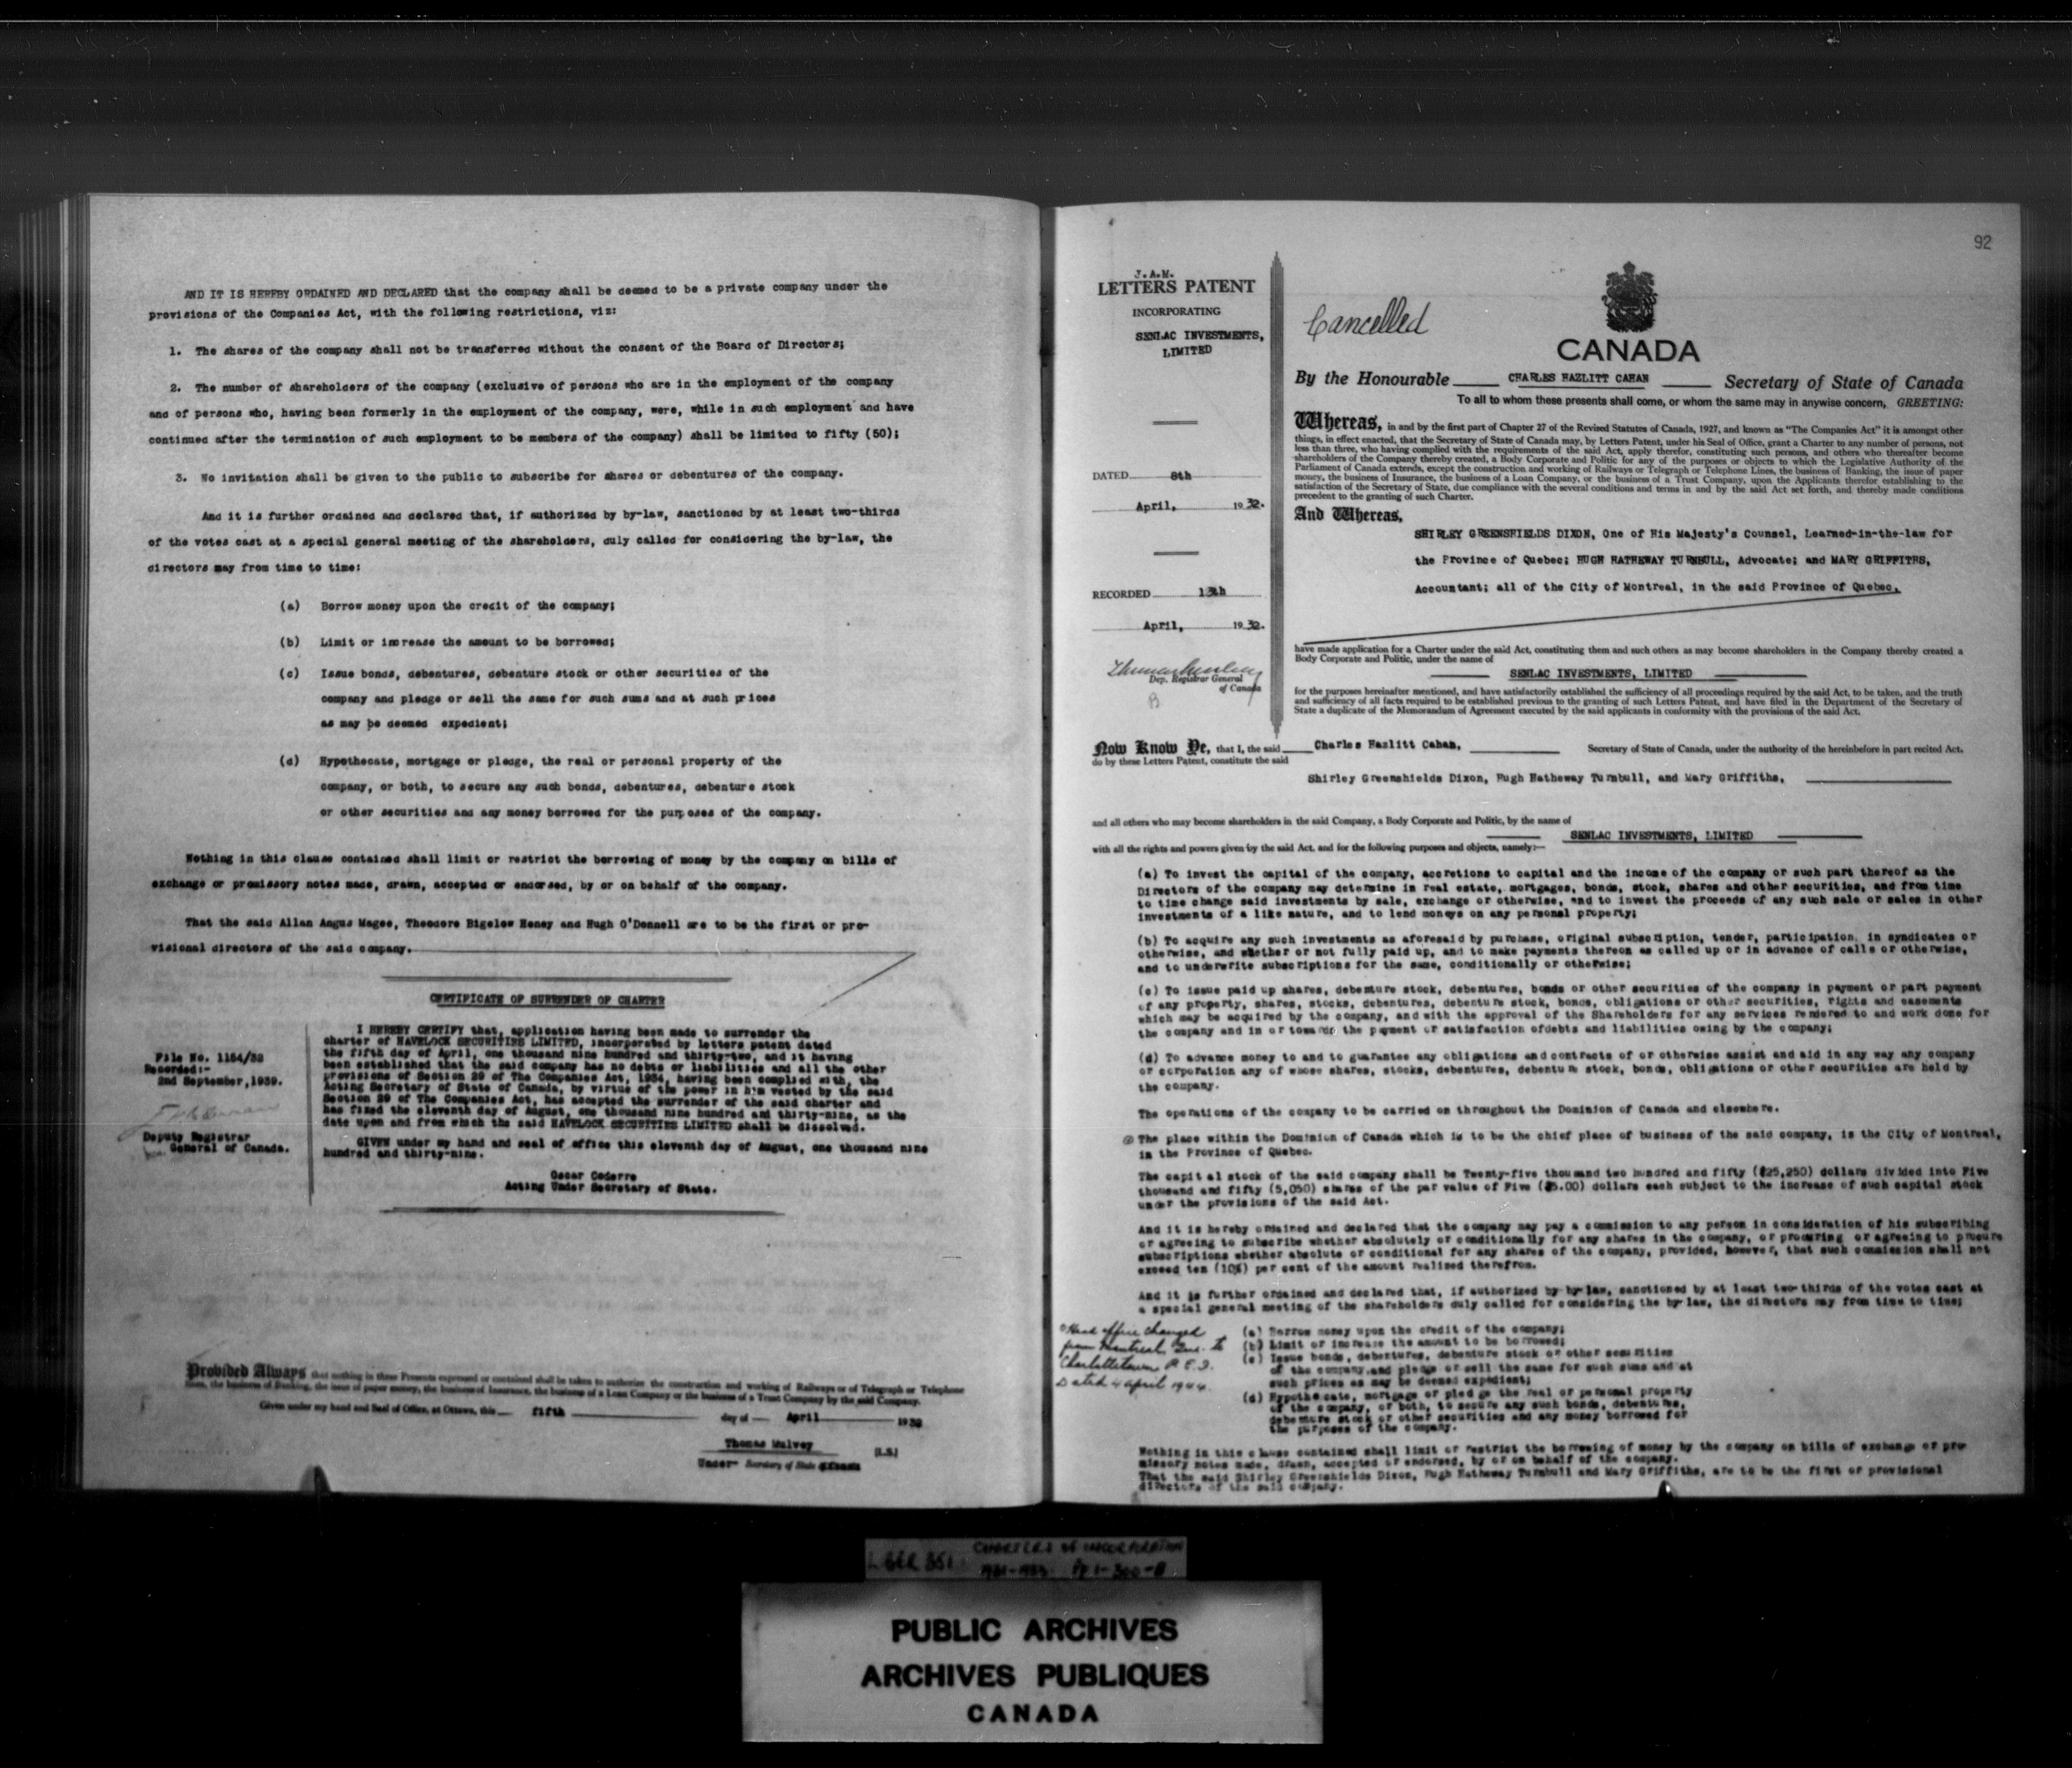 AND IT IS HEREBY ORDAINED AND DECLARED that the company shall be deemed to be a private company under the
provisions of the Companies Act, with the following restrictions, viz:
1. The shares of the company shall not be transferred without the consent of the Board of Directors;
2. The number of shareholders of the company (exclusive of persons who are in the employment of the company
and of persons who, having been formerly in the employment of the company, were, while in such employment and have
continued after the termination of such employment to be members of the company) shall be limited to fifty (50);
3. No invitation shall be given to the public to subscribe for shares or debentures of the company.
And it is further ordained and declared that, if authorized by by-law, sanctioned by at least two-thirds
of the votes cast at a special general meeting of the shareholders, duly called for considering the by-law, the
directors may from time to time:
(a) Borrow money upon the credit of the company;
(b) Limit or increase the amount to be borrowed;
(c) Issue bonds, debentures, debenture stock or other securities of the
company and pledge or sell the same for such sums and at such prices
as may be deemed expedient;
(d) Hypothecate, mortgage or pledge, the real or personal property of the
company, or both, to secure any such bonds, debentures, debenture stock
or other securities and any money borrowed for the purposes of the company.
Nothing in this clause contained shall limit or restrict the borrowing of money by the company on bills of
exchange or promissory notes made, drawn, accepted or endorsed, by or on behalf of the company.
That the said Allan Angus Magee, Theodore Bigelow Heney and Hugh O'Donnell are to be the first or pro-
visional directors of the said company.
CERTIFICATE OF SURRENDER OF CHARTER
File No. 1154/32
Recorded:-
2nd September, 1939.
Deputy Registrar
General of Canada.
I HEREBY CERTIFY that, application having been made to surrender the
charter of HAVELOCK SECURITIES LIMITED, incorporated by letters patent dated
the fifth day of April, one thousand nine hundred and thirty-two, and it having
been established that the said company has no debts or liabilities and all the other
provisions of Section 29 of The Companies Act, 1934, having been complied with, the
Acting Secretary of State of Canada, by virtue of the power in him vested by the said
Section 29 of The Companies Act, has accepted the surrender of the said charter and
has fixed the eleventh day of August, one thousand nine hundred and thirty-nine, as the
date upon and from which the said HAVELOCK SECURITIES LIMITED shall be dissolved.
GIVEN under my hand and seal of office this eleventh day of August, one thousand nine
hundred and thirty-nine.
Oscar Coderre
Acting Under Secretary of State.
Provided Always that nothing in these Presents expressed or contained shall be taken to authorize the construction and working of Railways or of Telegraph or Telephone
lines, the business of Banking, the issue of paper money, the business of Insurance, the business of a Loan Company or the business of a Trust Company by the said Company.
Given under my hand and Seal of Office, at Ottawa, this fifth day of April 1932
Thomas Mulvey [L.S.]
Under- Secretary of State of Canada
92
J.A.M.
LETTERS PATENT
INCORPORATING
SENLAC INVESTMENTS,
LIMITED
DATED 8th
April, 1932.
RECORDED 13th
April, 1932.
Thomas Mulvey
Dep. Registrar General
of Canada
B
Cancelled
CANADA
By the Honourable CHARLES HAZLITT CAHAN Secretary of State of Canada
To all to whom these presents shall come, or whom the same may in anywise concern, GREETING:
Whereas, in and by the first part of Chapter 27 of the Revised Statutes of Canada, 1927, and known as "The Companies Act" it is amongst other
things, in effect enacted, that the Secretary of State of Canada may, by Letters Patent, under his Seal of Office, grant a Charter to any number of persons, not
less than three, who having complied with the requirements of the said Act, apply therefor, constituting such persons, and others who thereafter become
shareholders of the Company thereby created, a Body Corporate and Politic for any of the purposes or objects to which the Legislative Authority of the
Parliament of Canada extends, except the construction and working of Railways or Telegraph or Telephone Lines, the business of Banking, the issue of paper
money, the business of Insurance, the business of a Loan Company, or the business of a Trust Company, upon the Applicants therefor establishing to the
satisfaction of the Secretary of State, due compliance with the several conditions and terms in and by the said Act set forth, and thereby made conditions
precedent to the granting of such Charter.
And Whereas,
SHIRLEY GREENSHIELDS DIXON, One of His Majesty's Counsel, Learned-in-the-law for
the Province of Quebec; HUGH HATHEWAY TURNBULL, Advocate; and MARY GRIFFITHS,
Accountant; all of the City of Montreal, in the said Province of Quebec,
have made application for a Charter under the said Act, constituting them and such others as may become shareholders in the Company thereby created a
Body Corporate and Politic, under the name of
SENLAC INVESTMENTS, LIMITED
for the purposes hereinafter mentioned, and have satisfactorily established the sufficiency of all proceedings required by the said Act, to be taken, and the truth
and sufficiency of all facts required to be established previous to the granting of such Letters Patent, and have filed in the Department of the Secretary of
State a duplicate of the Memorandum of Agreement executed by the said applicants in conformity with the provisions of the said Act.
Now Know Ye, that I, the said Charles Hazlitt Cahan, Secretary of State of Canada, under the authority of the hereinbefore in part recited Act,
do by these Letters Patent, constitute the said
Shirley Greenshields Dixon, Hugh Hatheway Turnbull, and Mary Griffiths,
and all others who may become shareholders in the said Company, a Body Corporate and Politic, by the name of
SENLAC INVESTMENTS, LIMITED
with all the rights and powers given by the said Act, and for the following purposes and objects, namely:—
(a) To invest the capital of the company, accretions to capital and the income of the company or such part thereof as the
Directors of the company may determine in real estate, mortgages, bonds, stock, shares and other securities, and from time
to time change said investments by sale, exchange or otherwise, and to invest the proceeds of any such sale or sales in other
investments of a like nature, and to lend moneys on any personal property;
(b) To acquire any such investments as aforesaid by purchase, original subscription, tender, participation, in syndicates or
otherwise, and whether or not fully paid up, and to make payments thereon as called up or in advance of calls or otherwise,
and to underwrite subscriptions for the same, conditionally or otherwise;
(c) To issue paid up shares, debenture stock, debentures, bonds or other securities of the company in payment or part payment
of any property, shares, stocks, debentures, debenture stock, bonds, obligations or other securities, rights and easements
which may be acquired by the company, and with the approval of the Shareholders for any services rendered to and work done for
the company and in or towards the payment or satisfaction ofdebts and liabilities owing by the company;
(d) To advance money to and to guarantee any obligations and contracts of or otherwise assist and aid in any way any company
or corporation any of whose shares, stocks, debentures, debenture stock, bonds, obligations or other securities are held by
the company.
The operations of the company to be carried on throughout the Dominion of Canada and elsewhere.
The place within the Dominion of Canada which is to be the chief place of business of the said company, is the City of Montreal,
in the Province of Quebec.
The capital stock of the said company shall be Twenty-five thousand two hundred and fifty ($25,250) dollars divided into Five
thousand and fifty (5,050) shares of the par value of Five ($5.00) dollars each subject to the increase of such capital stock
under the provisions of the said Act.
And it is hereby ordained and declared that the company may pay a commission to any person in consideration of his subscribing
or agreeing to subscribe whether absolutely or conditionally for any shares in the company, or procuring or agreeing to procure
subscriptions whether absolute or conditional for any shares of the company, provided, however, that such commission shall not
exceed ten (10%) per cent of the amount realized therefrom.
And it is further ordained and declared that, if authorized by by-law, sanctioned by at least two-thirds of the votes cast at
a special general meeting of the shareholders duly called for considering the by-law, the directors may from time to time;
Head office changed
from Montreal, Que. to
Charlottetown P.E.I.
Dated 4 April 1944.
(a) Borrow money upon the credit of the company;
(b) Limit or increase the amount to be borrowed;
(c) Issue bonds, debentures, debenture stock or other securities
of the company,and pledge or sell the same for such sums and at
such prices as may be deemed expedient;
(d) Hypothecate, mortgage or pledge the real or personal property
of the company, or both, to secure any such bonds, debentures,
debenture stock or other securities and any money borrowed for
the purposes of the company.
Nothing in this clause contained shall limit or restrict the borrowing of money by the company on bills of exchange or pro
missory notes made, drawn, accepted or endorsed, by or on behalf of the company.
That the said Shirley Greenshields Dixon, Hugh Hatheway Turnbull and Mary Griffiths, are to be the first or provisional
directors of the said company.
LIBER 351 CHARTERS OF INCORPORATION
1931-1933 Pp 1-300-B
PUBLIC ARCHIVES
ARCHIVES PUBLIQUES
CANADA